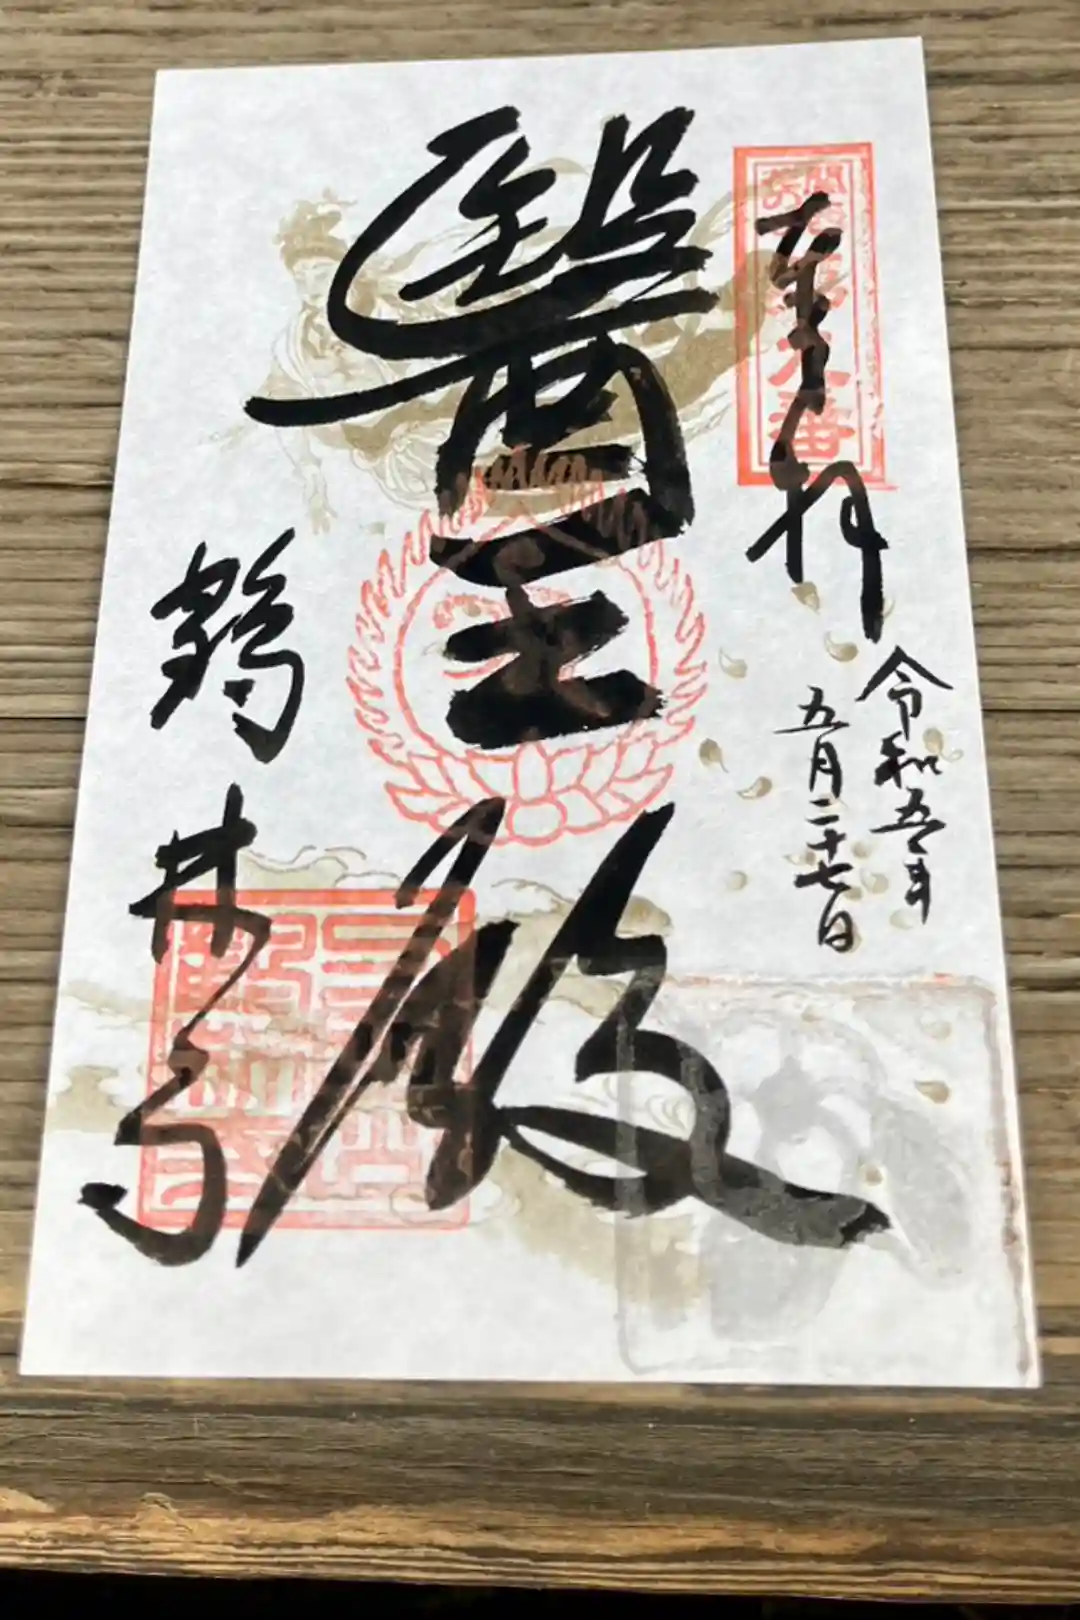 奉拝
令和五年
五月二十七日
醫王殿
鶴林寺